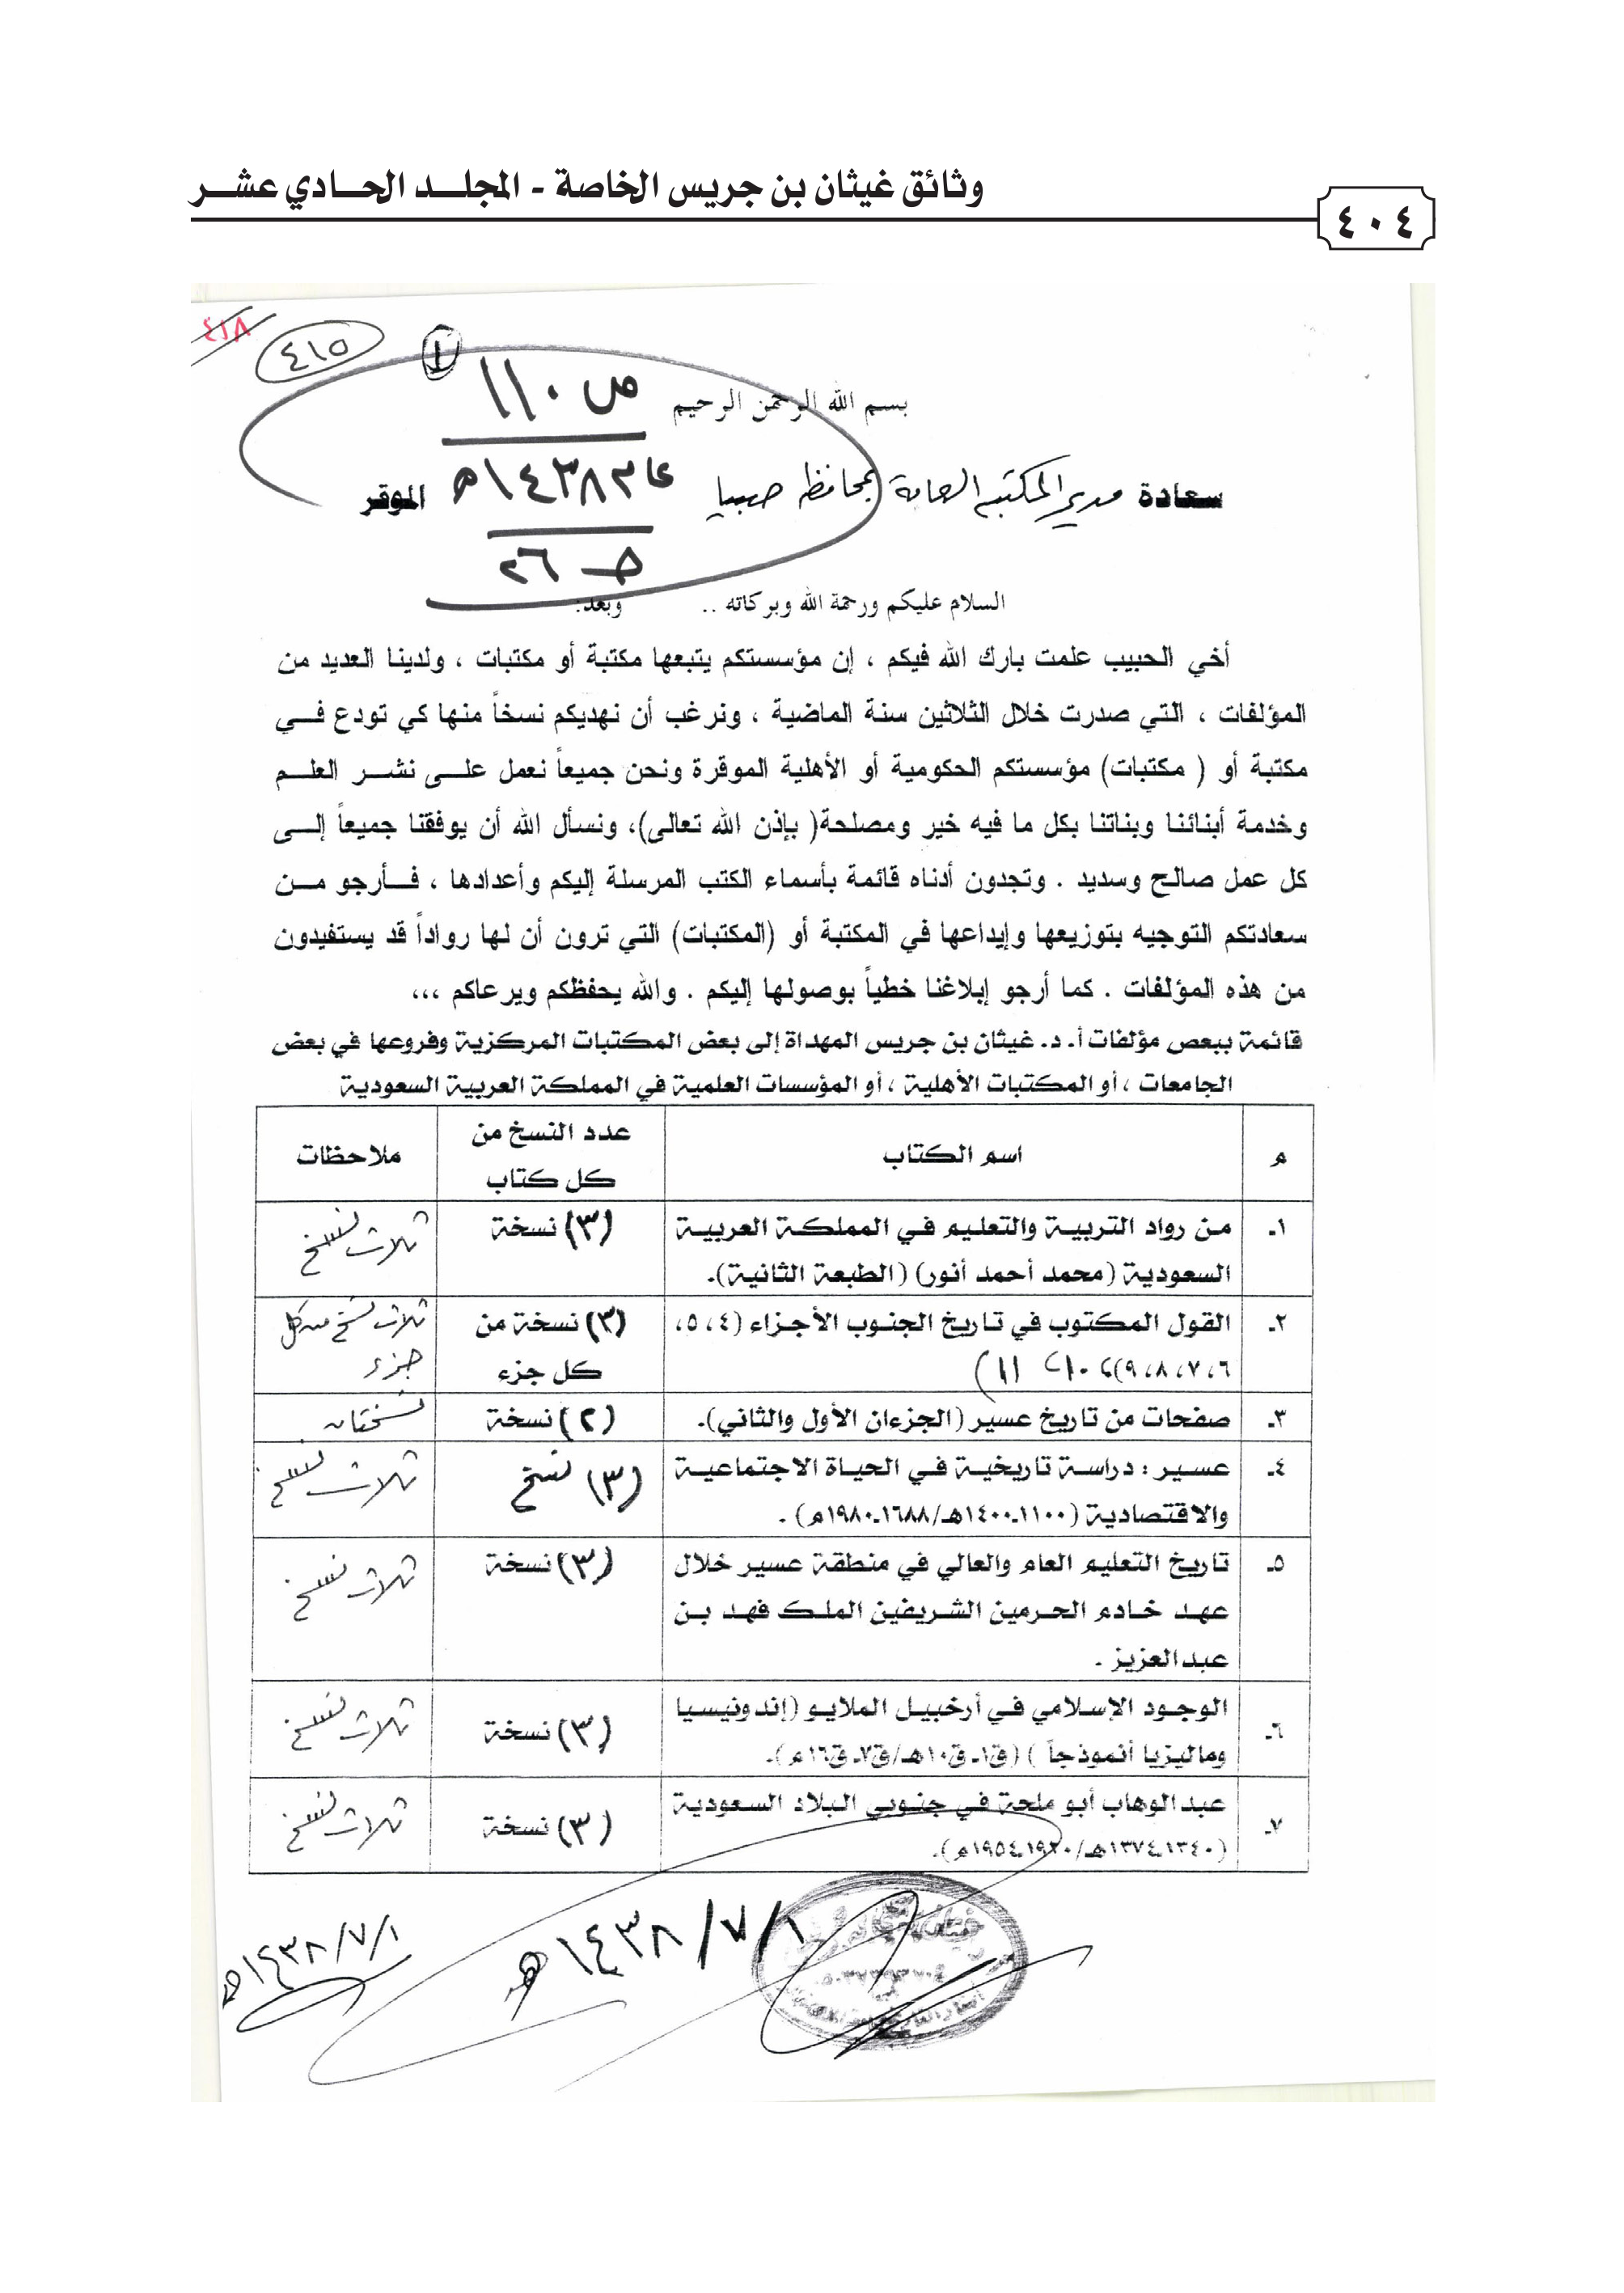 وثائق غيثان بن جريس الخاصة - المجلد الحادي عشر
٤٠٤
٤١٨
٤١٥
ص ١١٠
بسم الله الرحمن الرحيم
عام ١٤٣٨هـ
سعادة مدير المكتبة العامة بمحافظة صبيا الموقر
السلام عليكم ورحمة الله وبركاته .. وبعد:
أخي الحبيب علمت بارك الله فيكم ، إن مؤسستكم يتبعها مكتبة أو مكتبات ، ولدينا العديد من
المؤلفات ، التي صدرت خلال الثلاثين سنة الماضية ، ونرغب أن نهديكم نسخاً منها كي تودع في
مكتبة أو ( مكتبات) مؤسستكم الحكومية أو الأهلية الموقرة ونحن جميعاً نعمل على نشر العلم
وخدمة أبنائنا وبناتنا بكل ما فيه خير ومصلحة( بإذن الله تعالى)، ونسأل الله أن يوفقنا جميعاً إلى
كل عمل صالح وسديد . وتجدون أدناه قائمة بأسماء الكتب المرسلة إليكم وأعدادها ، فأرجو من
سعادتكم التوجيه بتوزيعها وإيداعها في المكتبة أو (المكتبات) التي ترون أن لها رواداً قد يستفيدون
من هذه المؤلفات . كما أرجو إبلاغنا خطياً بوصولها إليكم . والله يحفظكم ويرعاكم ،،،
قائمة ببعض مؤلفات أ. د. غيثان بن جريس المهداة إلى بعض المكتبات المركزية وفروعها في بعض
الجامعات ، أو المكتبات الأهلية ، أو المؤسسات العلمية في المملكة العربية السعودية
م اسم الكتاب عدد النسخ من كل كتاب ملاحظات
١ـ من رواد التربية والتعليم في المملكة العربية (٣) نسخة ثلاث نسخ
السعودية (محمد أحمد أنور) (الطبعة الثانية).
٢ـ القول المكتوب في تاريخ الجنوب الأجزاء (٤، ٥، (٣) نسخة من ثلاث نسخ من كل
٦، ٧، ٨، ٩)، ١٠، ١١) كل جزء جزء
٣ـ صفحات من تاريخ عسير (الجزءان الأول والثاني). (٢) نسخة نسختان
٤ـ عسير : دراسة تاريخية في الحياة الاجتماعية (٣) نسخ ثلاث نسخ
والاقتصادية (١١٠٠ـ١٤٠٠هـ/١٦٨٨ـ١٩٨٠م) .
٥ـ تاريخ التعليم العام والعالي في منطقة عسير خلال (٣) نسخة ثلاث نسخ
عهد خادم الحرمين الشريفين الملك فهد بن
عبدالعزيز .
٦ـ الوجود الإسلامي في أرخبيل الملايو (إندونيسيا (٣) نسخة ثلاث نسخ
وماليزيا أنموذجاً ) (ق١ـ ق١٠هـ/ق٧ـ ق١٦م).
٧ـ عبدالوهاب أبو ملحة في جنوبي البلاد السعودية (٣) نسخة ثلاث نسخ
(١٣٤٠ـ١٣٧٤هـ/١٩٢٠ـ١٩٥٤م).
١/٧/١٤٣٨هـ
١/٧/١٤٣٨هـ